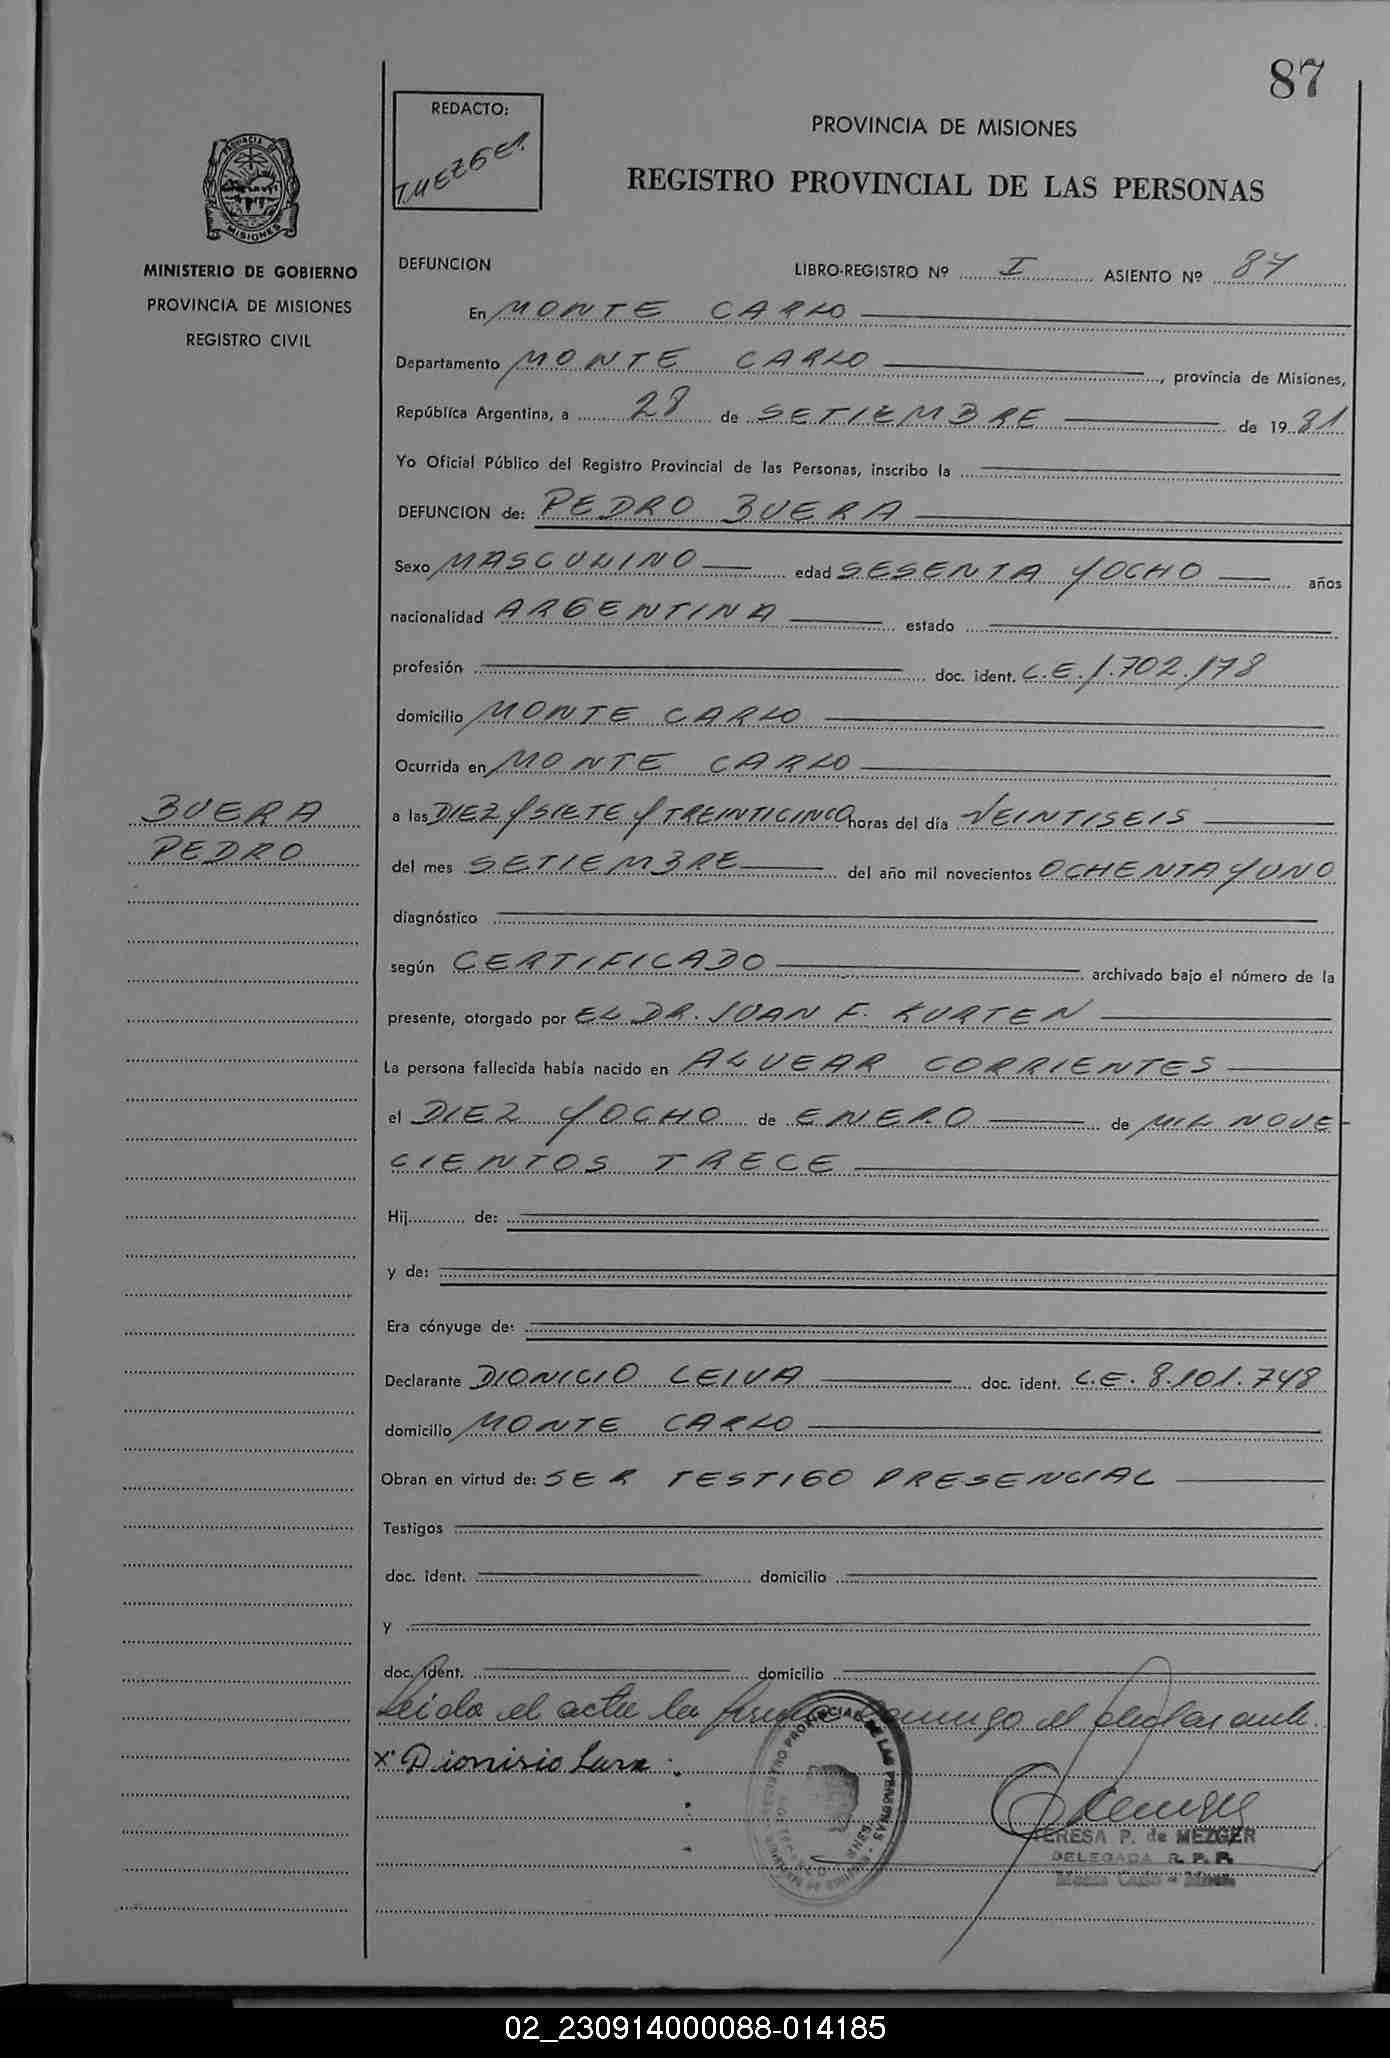 87
REDACTO:
T. MEZGER
PROVINCIA DE MISIONES
REGISTRO PROVINCIAL DE LAS PERSONAS
PROVINCIA DE
MISIONES
MINISTERIO DE GOBIERNO
PROVINCIA DE MISIONES
REGISTRO CIVIL
DEFUNCION LIBRO-REGISTRO Nº I ASIENTO Nº 87
En MONTE CARLO
Departamento MONTE CARLO, provincia de Misiones,
República Argentina, a 28 de SETIEMBRE de 1981
Yo Oficial Público del Registro Provincial de las Personas, inscribo la
DEFUNCION de: PEDRO BUERA
Sexo MASCULINO edad SESENTA Y OCHO años
nacionalidad ARGENTINA estado
profesión doc. ident. C.E. 1.702.178
domicilio MONTE CARLO
Ocurrida en MONTE CARLO
BUERA
PEDRO
a las DIEZ Y SIETE Y TREINTICINCO horas del día VEINTISEIS
del mes SETIEMBRE del año mil novecientos OCHENTA Y UNO
diagnóstico
según CERTIFICADO archivado bajo el número de la
presente, otorgado por EL DR. JUAN F. KURTEN
La persona fallecida había nacido en ALVEAR CORRIENTES
el DIEZ Y OCHO de ENERO de MIL NOVE
CIENTOS TRECE
Hij de:
y de:
Era cónyuge de:
Declarante DIONICIO LEIVA doc. ident. C.E. 8.101.748
domicilio MONTE CARLO
Obran en virtud de: SER TESTIGO PRESENCIAL
Testigos
doc. ident. domicilio
y
doc. ident. domicilio
Leida el acta la firma conmigo el declarante.
x Dionisio
REGISTRO PROVINCIAL DE LAS PERSONAS
TERESA P. de MEZGER
DELEGADA R. P. P.
Monte Carlo - Mnes.
02_230914000088-014185